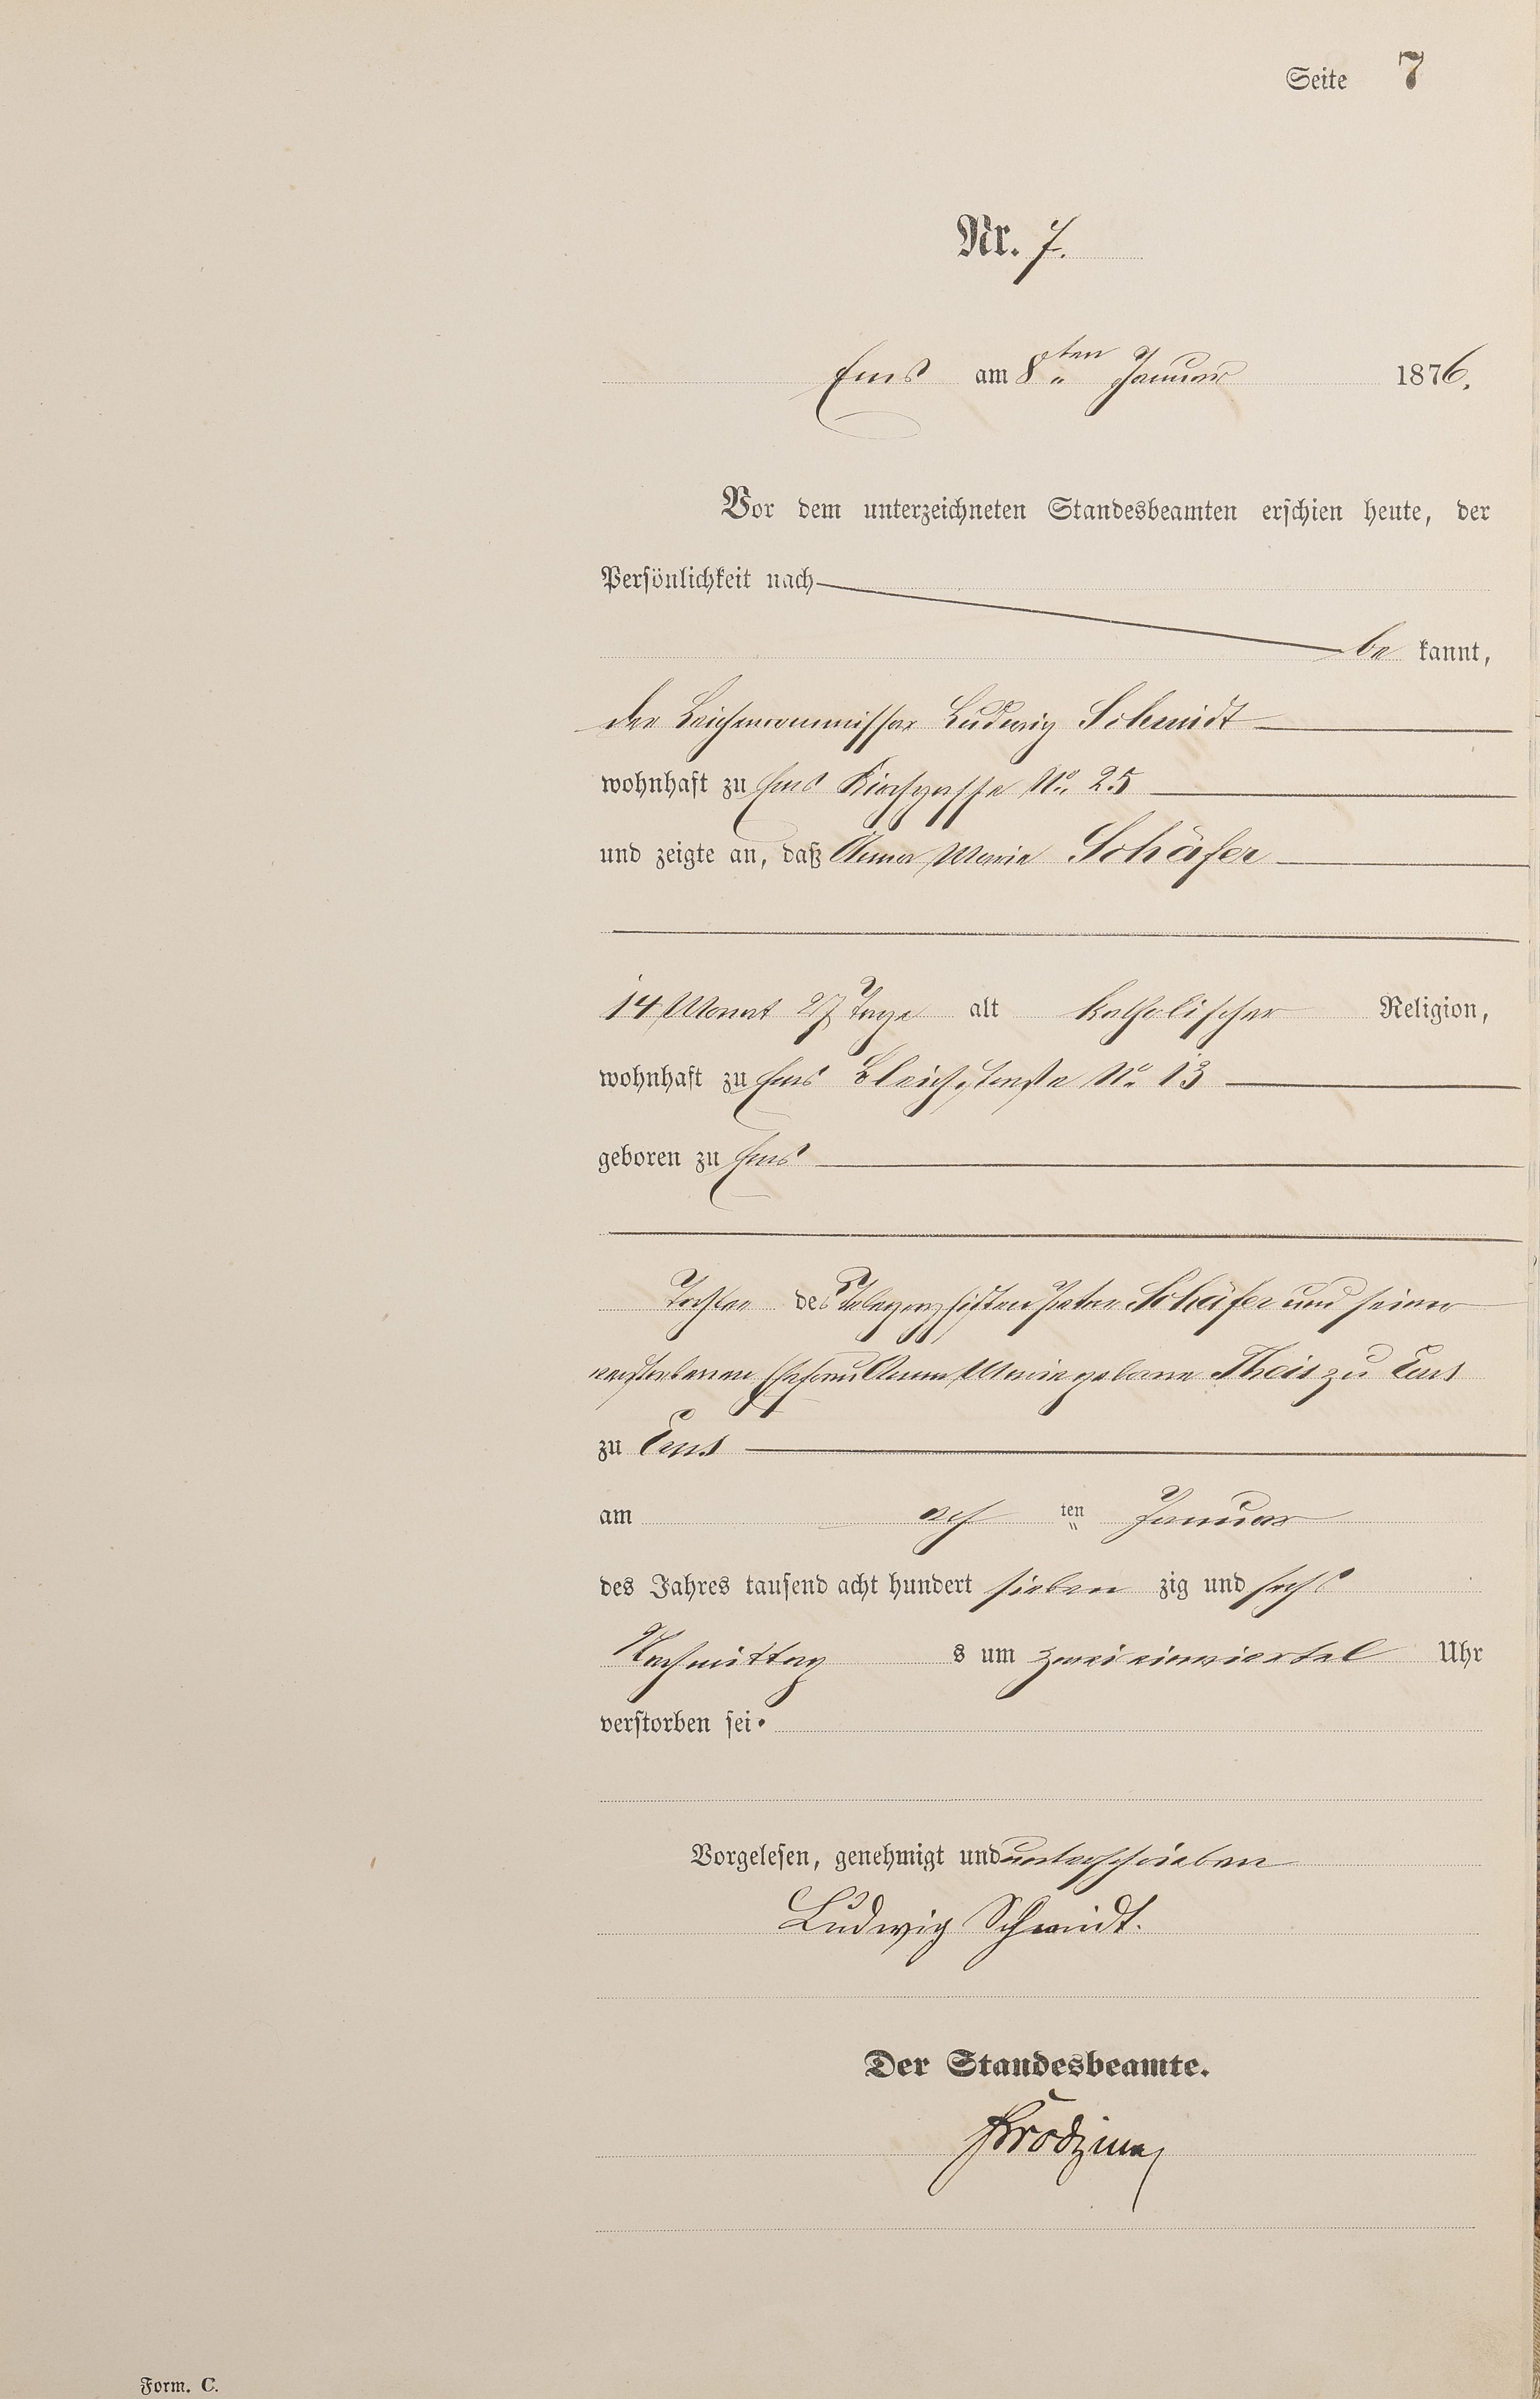 Seite 7
Nr. 7.
Ems am 8ten Januar 1876.
Vor dem unterzeichneten Standesbeamten erschien heute, der
Persönlichkeit nach
be kannt,
der Leichencommissar Ludwig Schmidt
wohnhaft zu Ems Kirchgasse No. 25
und zeigte an, daß Anna Maria Schäfer
14 Monat 27 Tage alt katholischer Religion,
wohnhaft zu Ems Bleichstraße No. 13
geboren zu Ems
Tochter des Telegraphisten Peter Schäfer und seiner
verstorbenen Ehefrau Anna Maria geborne Theis zu Ems
zu Ems
am acht ten Januar
des Jahres tausend acht hundert sieben zig und sechs
Nachmittag s um zwei einviertel Uhr
verstorben sei.
Vorgelesen, genehmigt und unterschrieben
Ludwig Schmidt.
Der Standesbeamte.
Form. C.